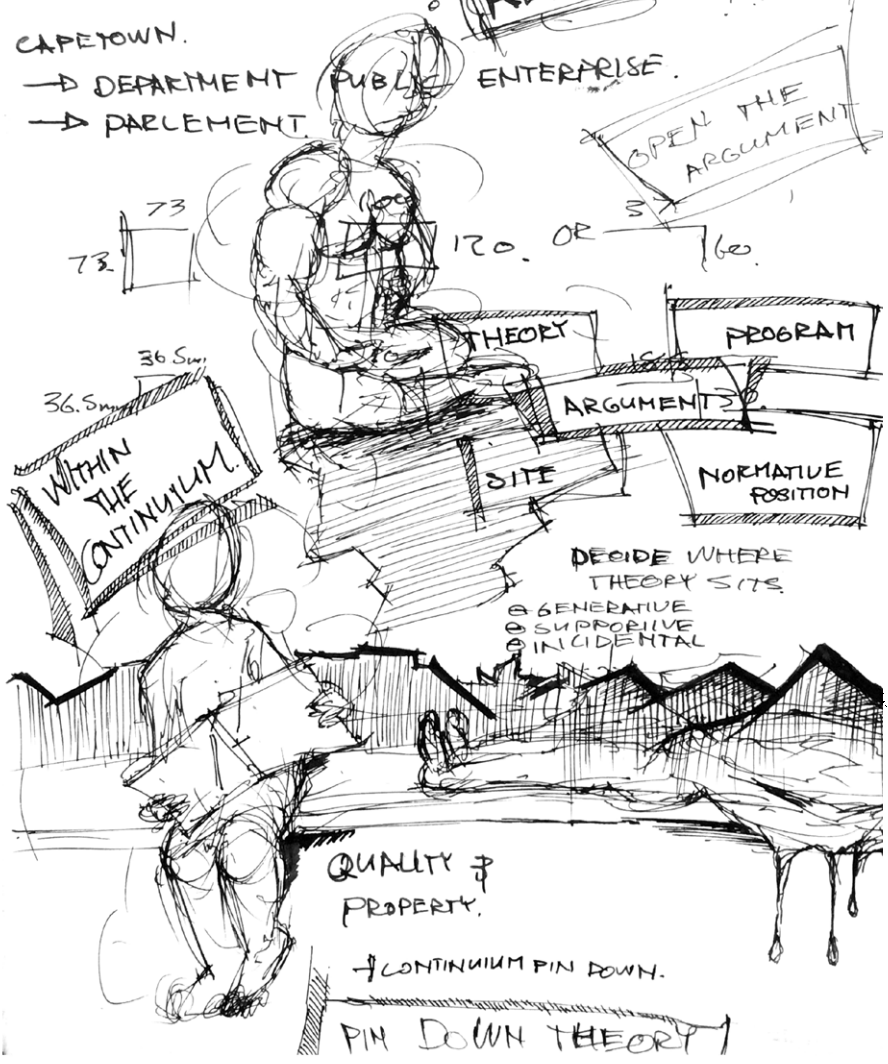 CAPETOWN.
→ DEPARTMENT PUBLIC ENTERPRISE.
→ PARLEMENT.
OPEN THE
ARGUMENT
73
73
120. OR
3
60.
THEORY
PROGRAM
ARGUMENTS
36.5mm
36.5mm
WITHIN
THE
CONTINUIUM.
SITE
NORMATIVE
POSITION
DECIDE WHERE
THEORY SITS.
GENERATIVE
SUPPORTIVE
INCIDENTAL
QUALITY &
PROPERTY.
→ CONTINUIUM PIN DOWN.
PIN DOWN THEORY